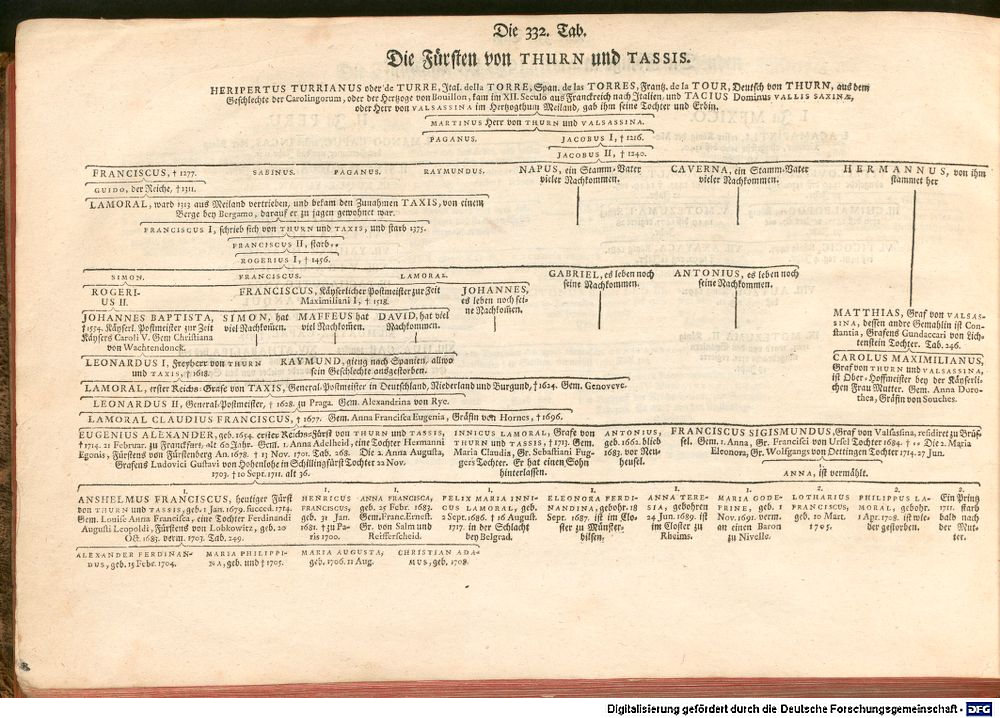 Die 332. Tab.
Die Fürsten von THURN und TASSIS.
HERIPERTUS TURRIANUS oder de TURRE, Ital. della TORRE, Span. de las TORRES, Frantz. de la TOUR, Deutsch von THURN, aus dem
Geschlechte der Carolingorum, oder der Hertzoge von Bouillon, kam im XII. Seculo aus Franckreich nach Italien, und TACIUS Dominus VALLIS SAXINÆ,
oder Herr von VALSASSINA im Hertzogthum Meiland, gab ihm seine Tochter und Erbin.
MARTINUS Herr von THURN und VALSASSINA.
PAGANUS. JACOBUS I, † 1216.
JACOBUS II, † 1240.
FRANCISCUS, † 1277. SABINUS. PAGANUS. RAYMUNDUS. NAPUS, ein Stamm-Vater
vieler Nachkommen.
CAVERNA, ein Stamm-Vater
vieler Nachkommen.
HERMANNUS, von ihm
stammet her
GUIDO, der Reiche, † 1311.
LAMORAL, ward 1313 aus Meiland vertrieben, und bekam den Zunahmen TAXIS, von einem
Berge bey Bergamo, darauf er zu jagen gewohnet war.
FRANCISCUS I, schrieb sich von THURN und TAXIS, und starb 1375.
FRANCISCUS II, starb..
ROGERIUS I, † 1456.
SIMON. FRANCISCUS. LAMORAL. GABRIEL, es leben noch
seine Nachkommen.
ANTONIUS, es leben noch
seine Nachkommen.
ROGERI-
US II.
FRANCISCUS, Käyserlicher Postmeister zur Zeit
Maximiliani I, † 1518.
JOHANNES,
es leben noch sei-
ne Nachkommen.
JOHANNES BAPTISTA,
† 1534. Käyserl. Postmeister zur Zeit
Käysers Caroli V. Gem Christiana
von Wachtendonck.
SIMON, hat
viel Nachkommen.
MAFFEUS hat
viel Nachkommen.
DAVID, hat viel
Nachkommen.
MATTHIAS, Graf von VALSAS-
SINA, dessen andre Gemahlin ist Con-
stantia, Grafens Gundaccari von Lich-
tenstein Tochter. Tab. 246.
LEONARDUS I, Freyherr von THURN
und TAXIS, † 1618.
RAYMUND, gieng nach Spanien, allwo
sein Geschlechte ausgestorben.
CAROLUS MAXIMILIANUS,
Graf von THURN und VALSASSINA,
ist Ober-Hoffmeister bey der Käyserli-
chen Frau Mutter. Gem. Anna Doro-
thea, Gräfin von Souches.
LAMORAL, erster Reichs-Grafe von TAXIS, General-Postmeister in Deutschland, Niederland und Burgund, † 1624. Gem. Genoveve.
LEONARDUS II, General-Postmeister, † 1628. zu Praga. Gem. Alexandrina von Rye.
LAMORAL CLAUDIUS FRANCISCUS, † 1677. Gem. Anna Francisca Eugenia, Gräfin von Hornes, † 1696.
EUGENIUS ALEXANDER, geb. 1654. erster Reichs-Fürst von THURN und TASSIS,
† 1714. 21 Februar. zu Franckfurt, alt 60 Jahr. Gem. 1. Anna Adelheid, eine Tochter Hermanni
Egonis, Fürstens von Fürstenberg An. 1678. † 13 Nov. 1701. Tab. 268. Die 2. Anna Augusta,
Grafens Ludovici Gustavi von Hohenlohe in Schillingfürst Tochter 22 Nov.
1703. † 10 Sept. 1711. alt 36.
INNICUS LAMORAL, Grafe von
THURN und TASSIS, † 1713. Gem.
Maria Claudia, Gr. Sebastiani Fug-
gers Tochter. Er hat einen Sohn
hinterlassen.
ANTONIUS,
geb. 1662. blieb
1683. vor Neu-
heusel.
FRANCISCUS SIGISMUNDUS, Graf von Valsassina, residiret zu Brüs-
sel. Gem. 1. Anna, Gr. Francisci von Ursel Tochter 1684. † .. Die 2. Maria
Eleonora, Gr. Wolfgangs von Oettingen Tochter 1714. 27 Jun.
ANNA, ist vermählt.
1.
ANSHELMUS FRANCISCUS, heutiger Fürst
von THURN und TASSIS, geb. 1 Jan. 1679. succed. 1714.
Gem. Louise Anna Francisca, eine Tochter Ferdinandi
Augusti Leopoldi, Fürstens von Lobkowitz, geb. 20
Oct. 1683. verm. 1703. Tab. 249.
1.
HENRICUS
FRANCISCUS,
geb. 31 Jan.
1681. † zu Pa-
ris 1700.
1.
ANNA FRANCISCA,
geb. 25 Febr. 1683.
Gem. Franc. Ernest.
Gr. von Salm und
Reifferscheid.
1.
FELIX MARIA INNI-
CUS LAMORAL, geb.
2 Sept. 1686. † 16 August.
1717. in der Schlacht
bey Belgrad.
1.
ELEONORA FERDI-
NANDINA, gebohr. 18
Sept. 1687. ist im Clo-
ster zu Münster-
bilsen.
1.
ANNA TERE-
SIA, gebohren
24 Jun. 1689. ist
im Closter zu
Rheims.
1.
MARIA GODE-
FRINE, geb. 1
Nov. 1691. verm.
an einen Baron
zu Nivelle.
2.
LOTHARIUS
FRANCISCUS,
geb. 10 Mart.
1705.
2.
PHILIPPUS LA-
MORAL, gebohr.
1 Apr. 1708. ist wie-
der gestorben.
2.
Ein Printz
1711. starb
bald nach
der Mut-
ter.
ALEXANDER FERDINAN-
DUS, geb. 15 Febr. 1704.
MARIA PHILIPPI-
NA, geb. und † 1705.
MARIA AUGUSTA,
geb. 1706. 11 Aug.
CHRISTIAN ADA-
MUS, geb. 1708.
Digitalisierung gefördert durch die Deutsche Forschungsgemeinschaft - DFG